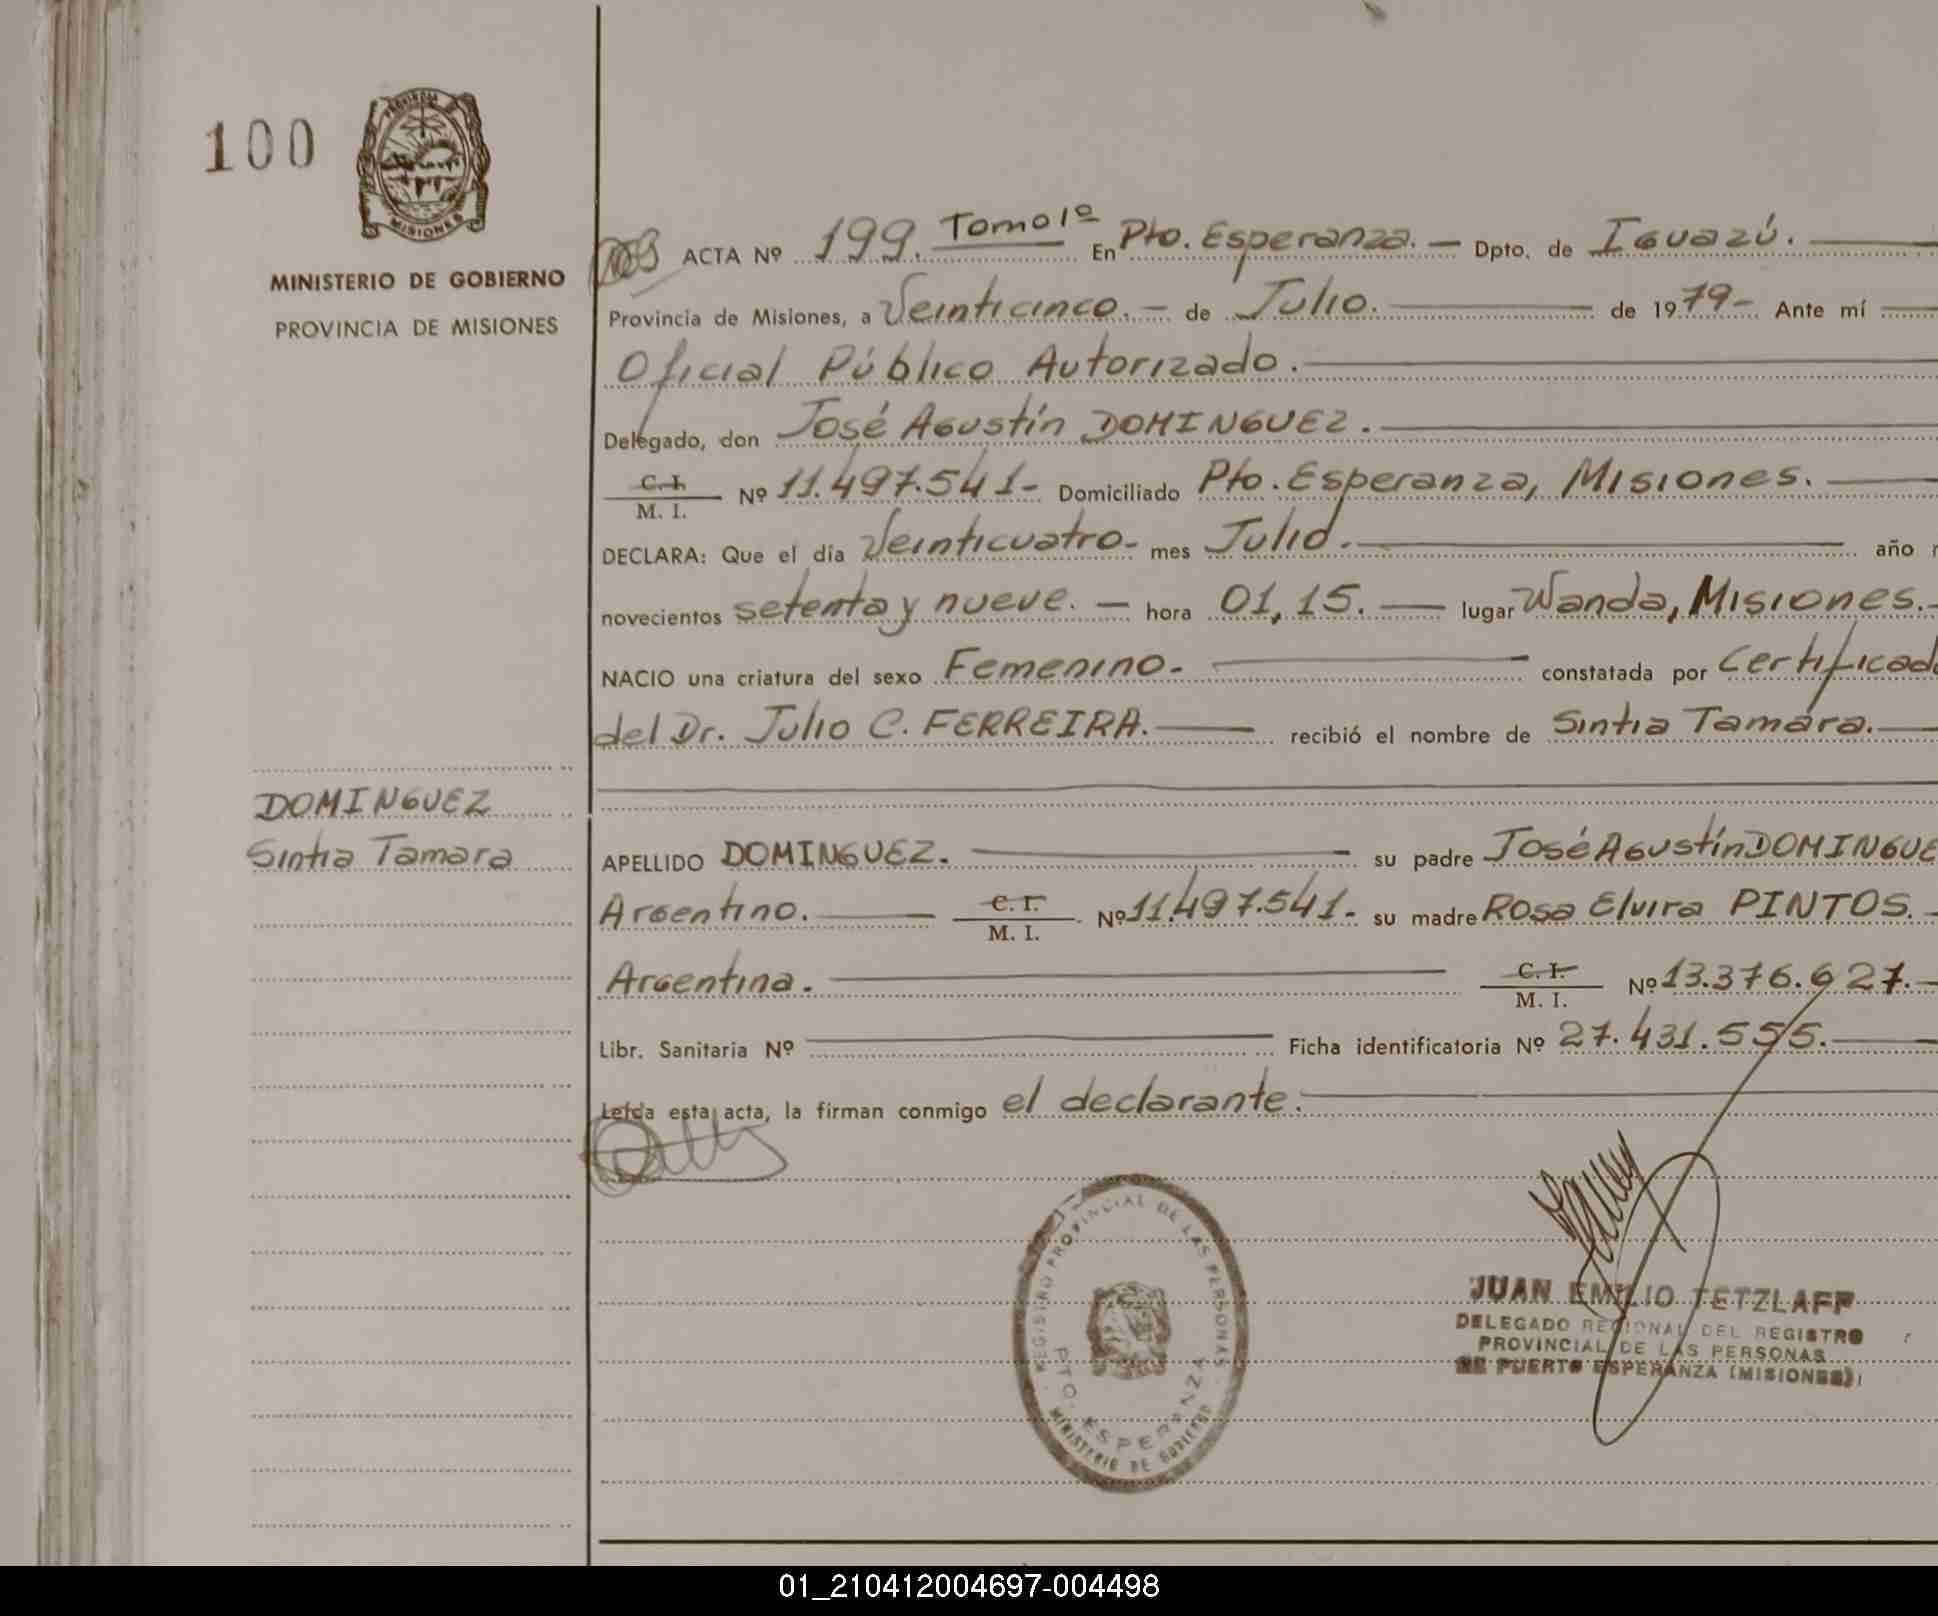 100
PROVINCIA DE
MISIONES
MINISTERIO DE GOBIERNO
PROVINCIA DE MISIONES
ACTA Nº 199. Tomo 1º En Pto. Esperanza. — Dpto. de Iguazú.
Provincia de Misiones, a Veinticinco. — de Julio. de 1979- Ante mí
Oficial Público Autorizado.
Delegado, don José Agustín DOMINGUEZ.
C. I.
M. I. Nº 11.497.541- Domiciliado Pto. Esperanza, Misiones.
DECLARA: Que el día Veinticuatro- mes Julio. año
novecientos setenta y nueve. — hora 01,15. — lugar Wanda, Misiones.-
NACIO una criatura del sexo Femenino.- constatada por Certificad
del Dr. Julio C. FERREIRA. recibió el nombre de Sintia Tamara.
DOMINGUEZ
Sintia Tamara
APELLIDO DOMINGUEZ. su padre José Agustín DOMINGUE
Argentino. C. I.
M. I. Nº 11.497.541- su madre Rosa Elvira PINTOS.
Argentina. C. I.
M. I. Nº 13.376.627.-
Libr. Sanitaria Nº Ficha identificatoria Nº 27.431.555.
Leída esta acta, la firman conmigo el declarante.
REGISTRO PROVINCIAL DE LAS PERSONAS
PTO. ESPERANZA
MINISTERIO DE GOBIERNO
JUAN EMILIO TETZLAFF
DELEGADO REGIONAL DEL REGISTRO
PROVINCIAL DE LAS PERSONAS
DE PUERTO ESPERANZA (MISIONES)
01_210412004697-004498